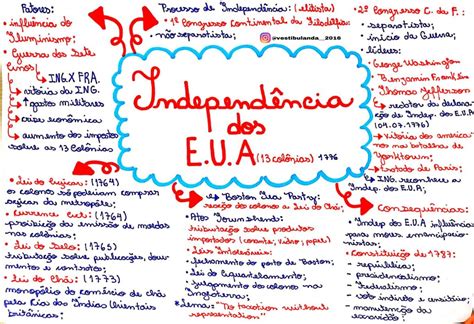 Fatores:
• influência do
Iluminismo:
• Guerra dos Sete
Anos:
ING. X FRA.
• vitória da ING.
• ↑ gastos militares
• crise econômica
• aumento dos impostos
sobre as 13 Colônias
• Lei do Açúcar: (1764)
os colonos só poderiam comprar
açúcar da metrópole;
• Currence Act: (1764)
proibição da emissão de moedas
nas colônias;
• Lei do Selo: (1765)
tributação sobre publicações, docu-
mentos e contratos;
• Lei do Chá: (1773)
monopólio do comércio de chá
pela Cia das Índias Orientais
britânicas;
Processo de Independência: (elitista)
• 1º Congresso Continental da Filadélfia:
não separatista;
@vestibulanda_2018
Independência
dos
E.U.A (13 colônias) 1776
• Boston Tea Party:
reação do colono a Lei do Chá;
• Ato Townshend:
tributação sobre produtos
importados (corante, vidro, papel)
• Leis Intoleráveis:
• fechamento do porto de Boston;
• Lei do Aquartelamento;
• julgamento do colono na
Inglaterra;
* Lema: "No taxation without
representation"
• 2º Congresso C. da F.:
• separatista;
• início da Guerra;
• líderes:
• George Washington
• Benjamin Franklin
• Thomas Jefferson
→ redator da declara-
ção de Indep. dos E.U.A
(04.07.1776)
• Vitória dos america-
nos na batalha de
Yorktown;
• tratado de Paris:
↳ ING. reconhece a
Indep. dos E.U.A;
• Consequências:
• Indep. dos E.U.A influência
para movs. emancipacio-
nistas;
• Constituição de 1787:
- república;
- presidencialismo
- Federalismo;
- voto indireto e censitário;